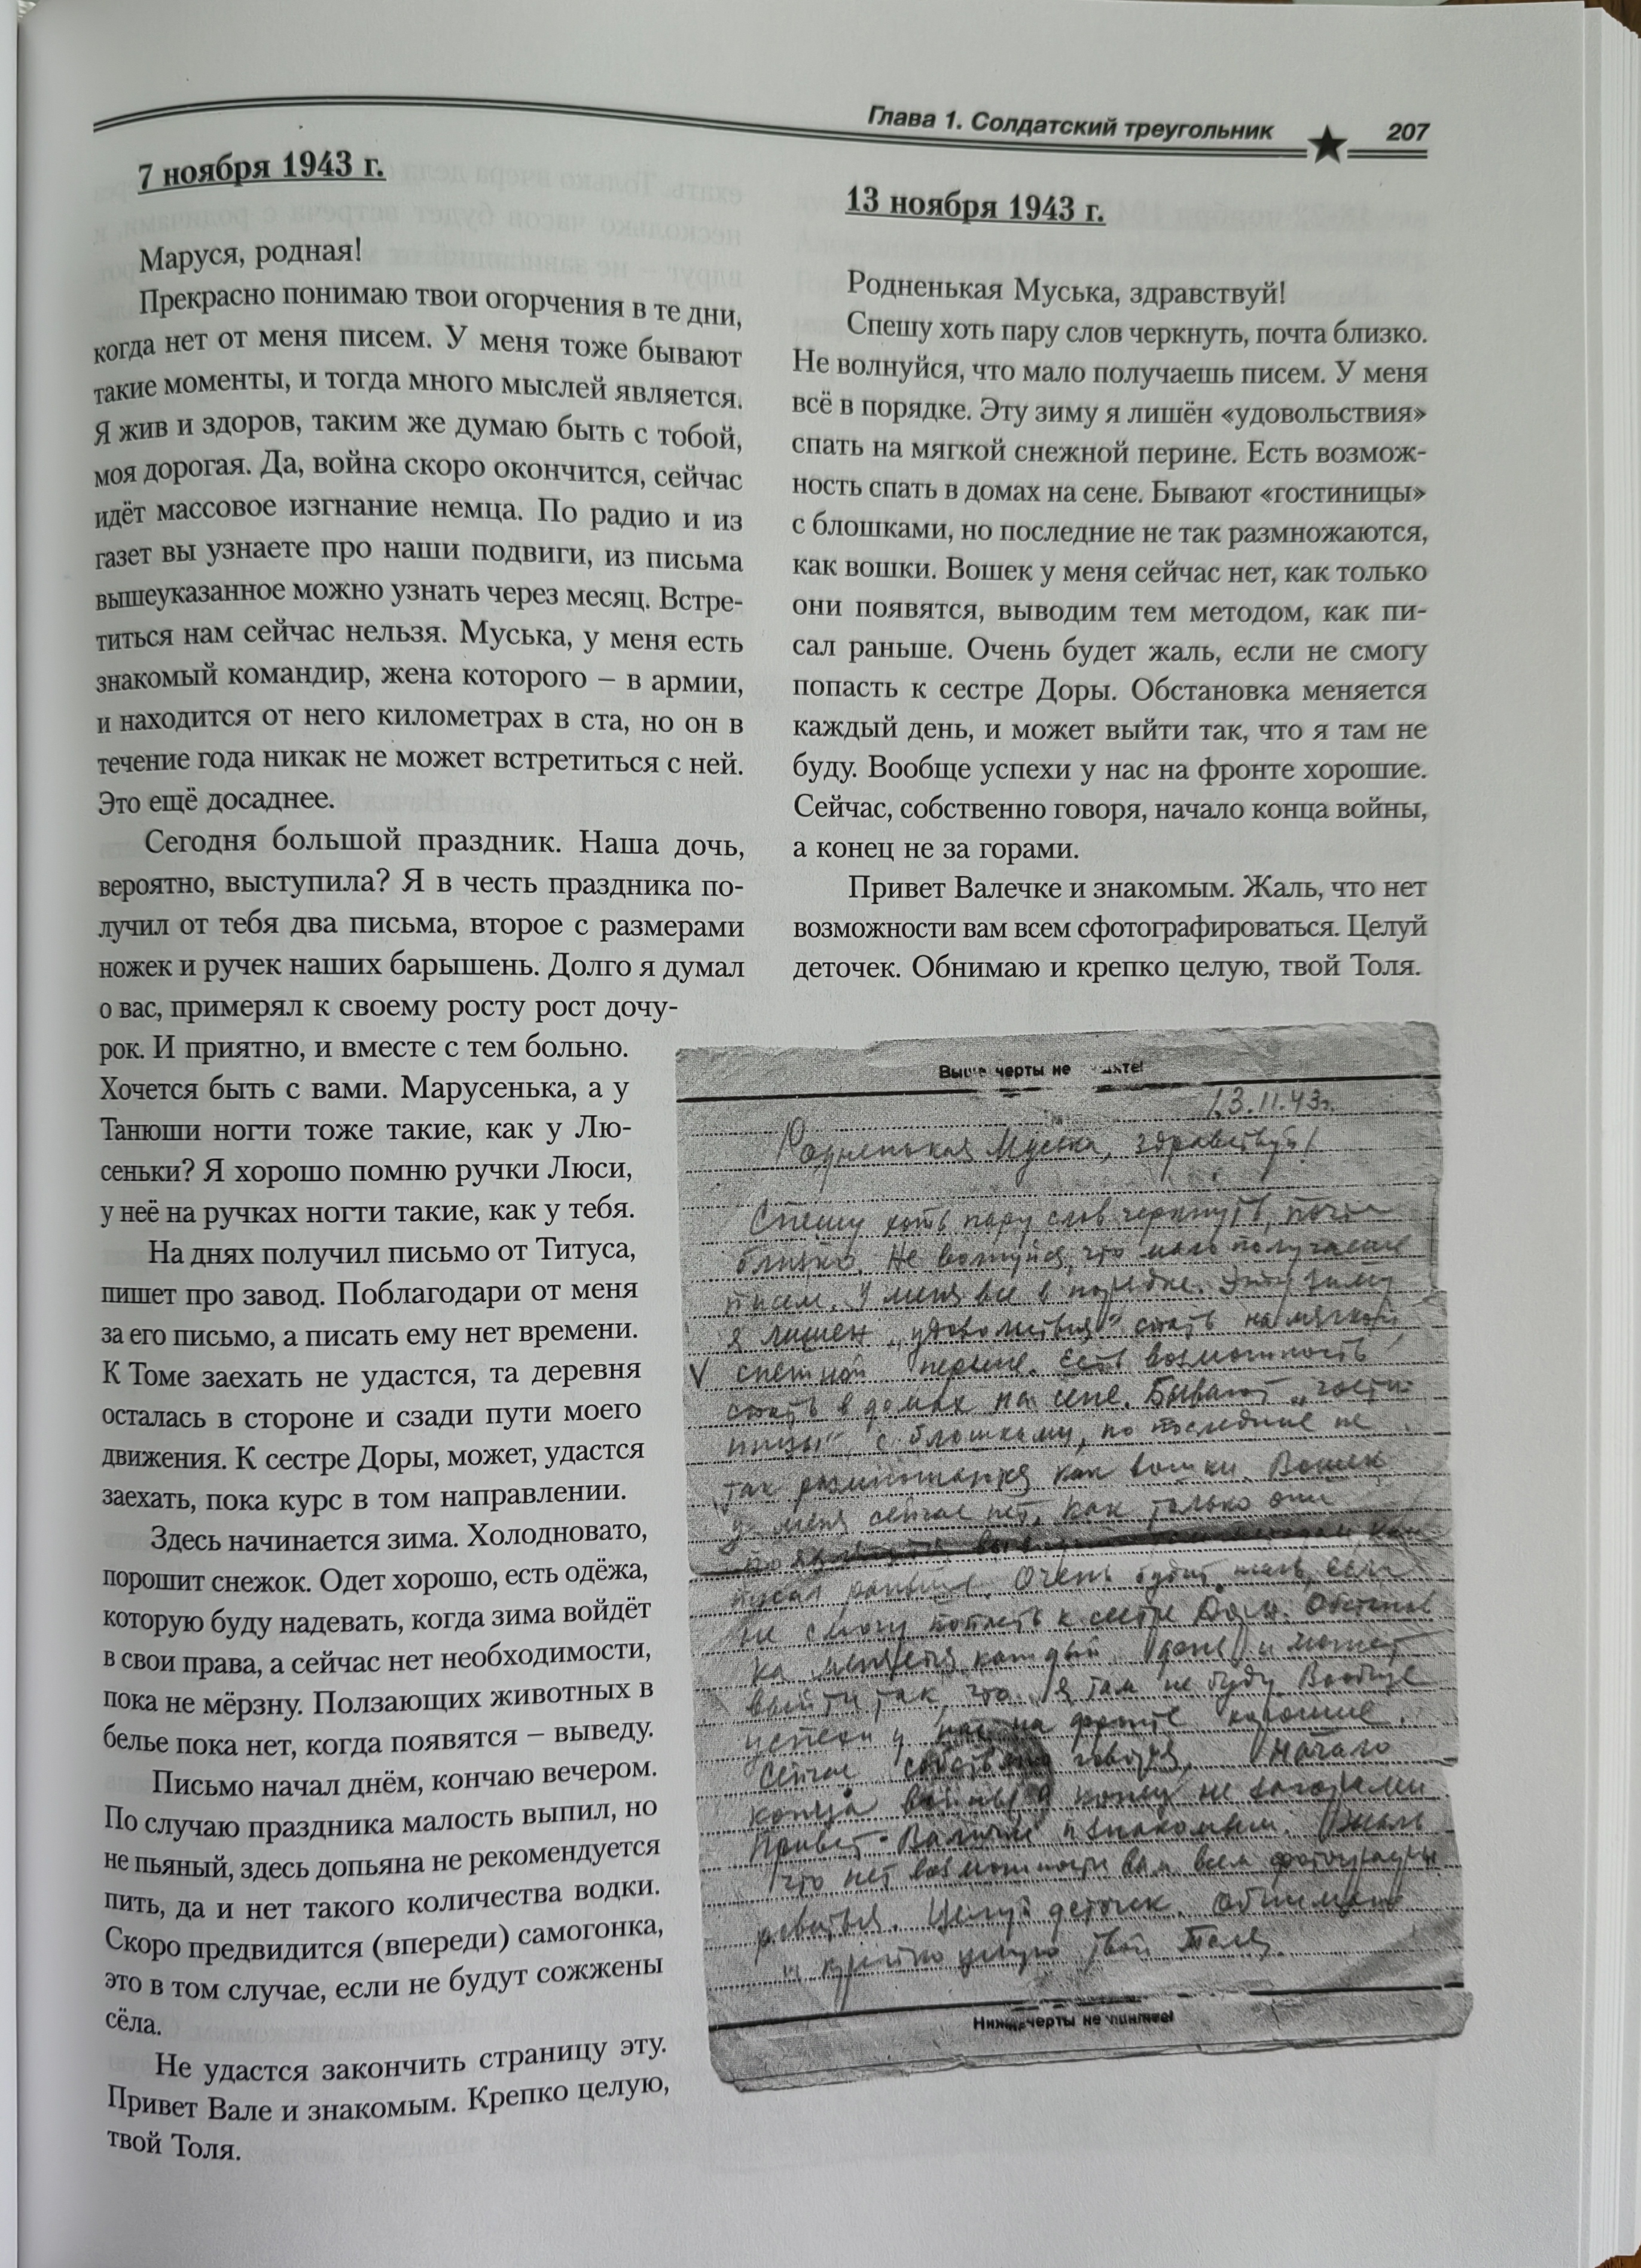 Глава 1. Солдатский треугольник
207
7 ноября 1943 г.
Маруся, родная!
Прекрасно понимаю твои огорчения в те дни,
когда нет от меня писем. У меня тоже бывают
такие моменты, и тогда много мыслей является.
Я жив и здоров, таким же думаю быть с тобой,
моя дорогая. Да, война скоро окончится, сейчас
идёт массовое изгнание немца. По радио и из
газет вы узнаете про наши подвиги, из письма
вышеуказанное можно узнать через месяц. Встре-
титься нам сейчас нельзя. Муська, у меня есть
знакомый командир, жена которого – в армии,
и находится от него километрах в ста, но он в
течение года никак не может встретиться с ней.
Это ещё досаднее.
Сегодня большой праздник. Наша дочь,
вероятно, выступила? Я в честь праздника по-
лучил от тебя два письма, второе с размерами
ножек и ручек наших барышень. Долго я думал
о вас, примерял к своему росту рост дочу-
рок. И приятно, и вместе с тем больно.
Хочется быть с вами. Марусенька, а у
Танюши ногти тоже такие, как у Лю-
сеньки? Я хорошо помню ручки Люси,
у неё на ручках ногти такие, как у тебя.
На днях получил письмо от Титуса,
пишет про завод. Поблагодари от меня
за его письмо, а писать ему нет времени.
К Томе заехать не удастся, та деревня
осталась в стороне и сзади пути моего
движения. К сестре Доры, может, удастся
заехать, пока курс в том направлении.
Здесь начинается зима. Холодновато,
порошит снежок. Одет хорошо, есть одёжа,
которую буду надевать, когда зима войдёт
в свои права, а сейчас нет необходимости,
пока не мёрзну. Ползающих животных в
белье пока нет, когда появятся – выведу.
Письмо начал днём, кончаю вечером.
По случаю праздника малость выпил, но
не пьяный, здесь допьяна не рекомендуется
пить, да и нет такого количества водки.
Скоро предвидится (впереди) самогонка,
это в том случае, если не будут сожжены
сёла.
Не удастся закончить страницу эту.
Привет Вале и знакомым. Крепко целую,
твой Толя.
13 ноября 1943 г.
Родненькая Муська, здравствуй!
Спешу хоть пару слов черкнуть, почта близко.
Не волнуйся, что мало получаешь писем. У меня
всё в порядке. Эту зиму я лишён «удовольствия»
спать на мягкой снежной перине. Есть возмож-
ность спать в домах на сене. Бывают «гостиницы»
с блошками, но последние не так размножаются,
как вошки. Вошек у меня сейчас нет, как только
они появятся, выводим тем методом, как пи-
сал раньше. Очень будет жаль, если не смогу
попасть к сестре Доры. Обстановка меняется
каждый день, и может выйти так, что я там не
буду. Вообще успехи у нас на фронте хорошие.
Сейчас, собственно говоря, начало конца войны,
а конец не за горами.
Привет Валечке и знакомым. Жаль, что нет
возможности вам всем сфотографироваться. Целуй
деточек. Обнимаю и крепко целую, твой Толя.
черты не
13.11.43г.
Родненькая Муська, здравствуй!
Спешу хоть пару слов черкнуть, почта
близко. Не волнуйся, что мало получаешь
писем. У меня все в порядке. Эту зиму
я лишен „удовольствия" спать на мягкой
V снежной перине. Есть возможность
спать в домах на сене. Бывают „гости-
ницы" с блошками, но последние не
так размножаются как вошки. Вошек
у меня сейчас нет, как только они
появятся как
писал раньше. Очень будет жаль, если
не смогу попасть к сестре Доры. Обстанов
ка меняется каждый день и может
выйти так, что я там не буду. Вообще
успехи у нас на фронте хорошие.
Сейчас собственно говоря, начало
конца войны а конец не за горами
Привет Валечке и знакомым. Жаль
что нет возможности вам всем фотографи
роваться. Целуй деточек. Обнимаю
и крепко целую твой Толя.
черты не